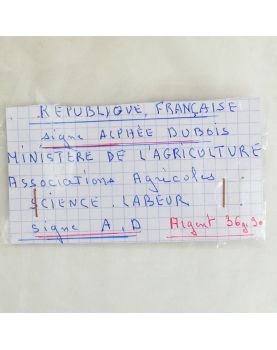 REPUBLIQUE. FRANÇAISE
Signe ALPHÉE DUBOIS
MINISTERE DE L'AGRICULTURE
Associations Agricoles
SCIENCE. LABEUR
Signe A.D Argent 36g